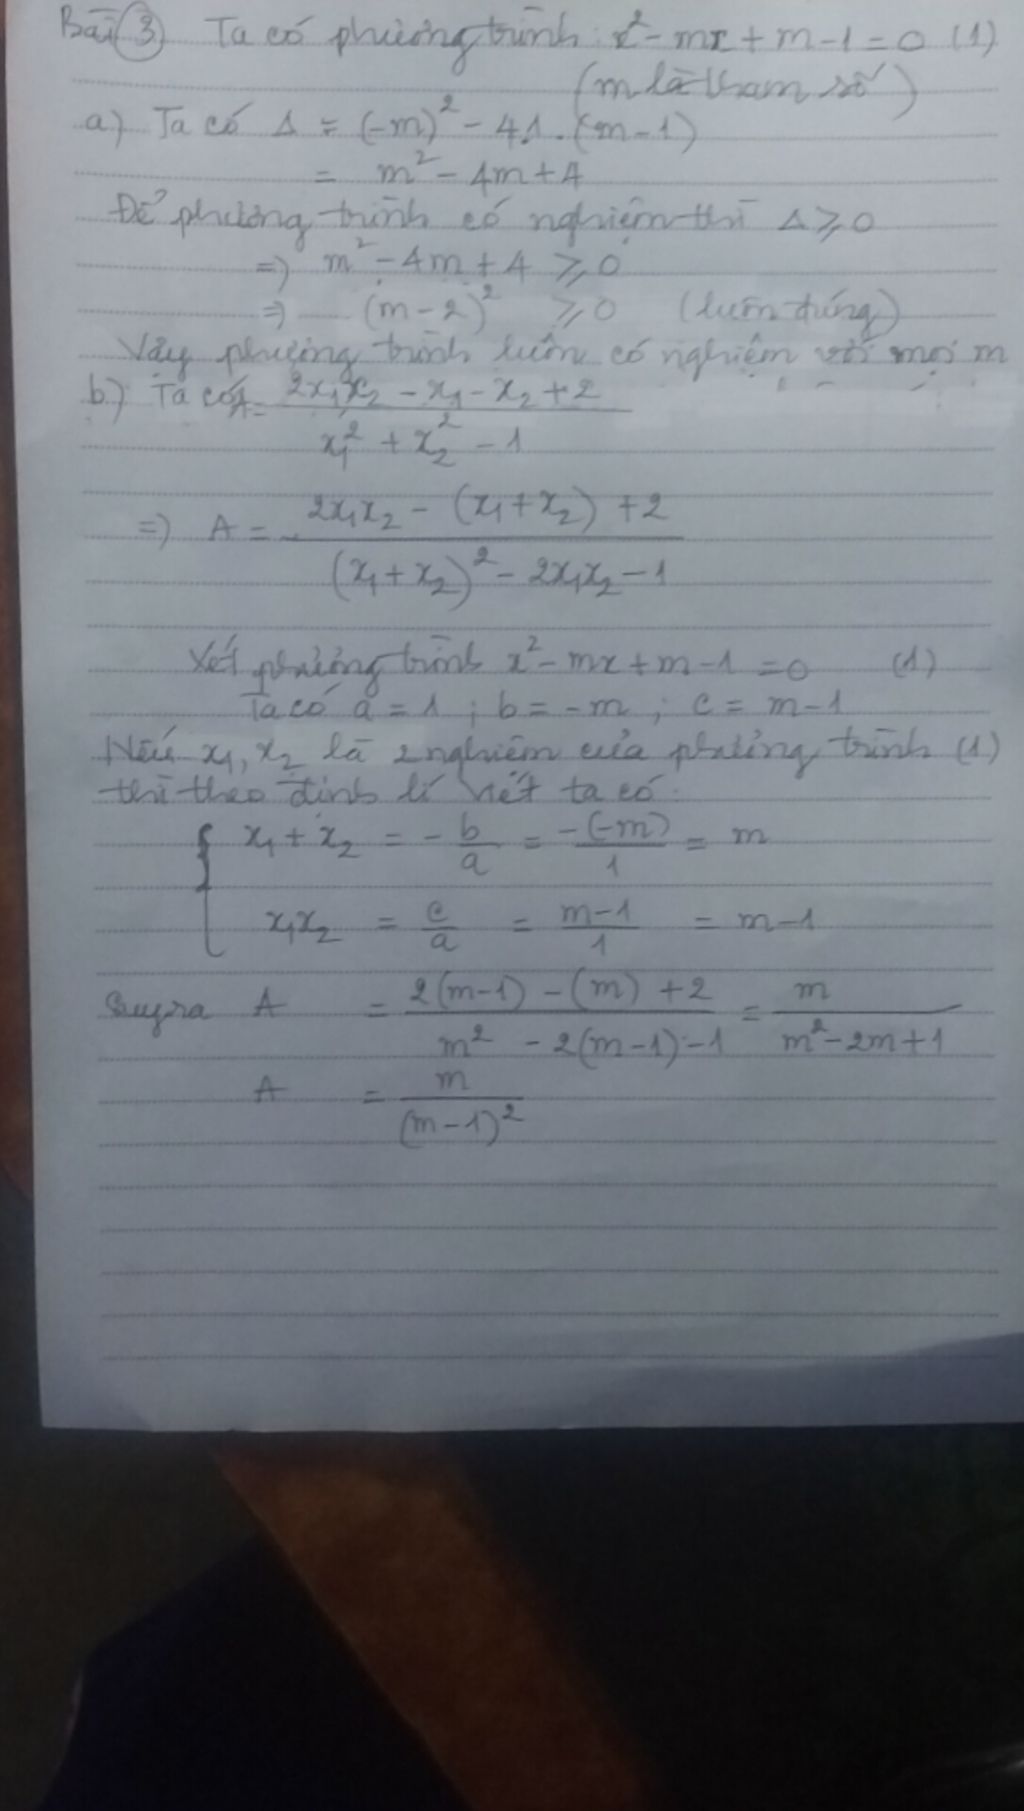 Bài 3 Ta có phương trình: x² - mx + m - 1 = 0 (1)
(m là tham số)
a) Ta có Δ = (-m)² - 4.1.(m-1)
= m² - 4m + 4
Để phương trình có nghiệm thì Δ ⩾ 0
=> m² - 4m + 4 ⩾ 0
=> (m-2)² ⩾ 0 (luôn đúng)
Vậy phương trình luôn có nghiệm với mọi m
b) Ta có A = (2x₁x₂ - x₁ - x₂ + 2) / (x₁² + x₂² - 1)
=> A = (2x₁x₂ - (x₁ + x₂) + 2) / ((x₁ + x₂)² - 2x₁x₂ - 1)
Xét phương trình x² - mx + m - 1 = 0 (1)
Ta có a = 1 ; b = -m ; c = m - 1
Nếu x₁, x₂ là 2 nghiệm của phương trình (1)
thì theo định lí Viét ta có
{ x₁ + x₂ = - b/a = -(-m)/1 = m
x₁x₂ = c/a = (m-1)/1 = m - 1
Suy ra A = (2(m-1) - (m) + 2) / (m² - 2(m-1) - 1) = m / (m² - 2m + 1)
A = m / (m-1)²